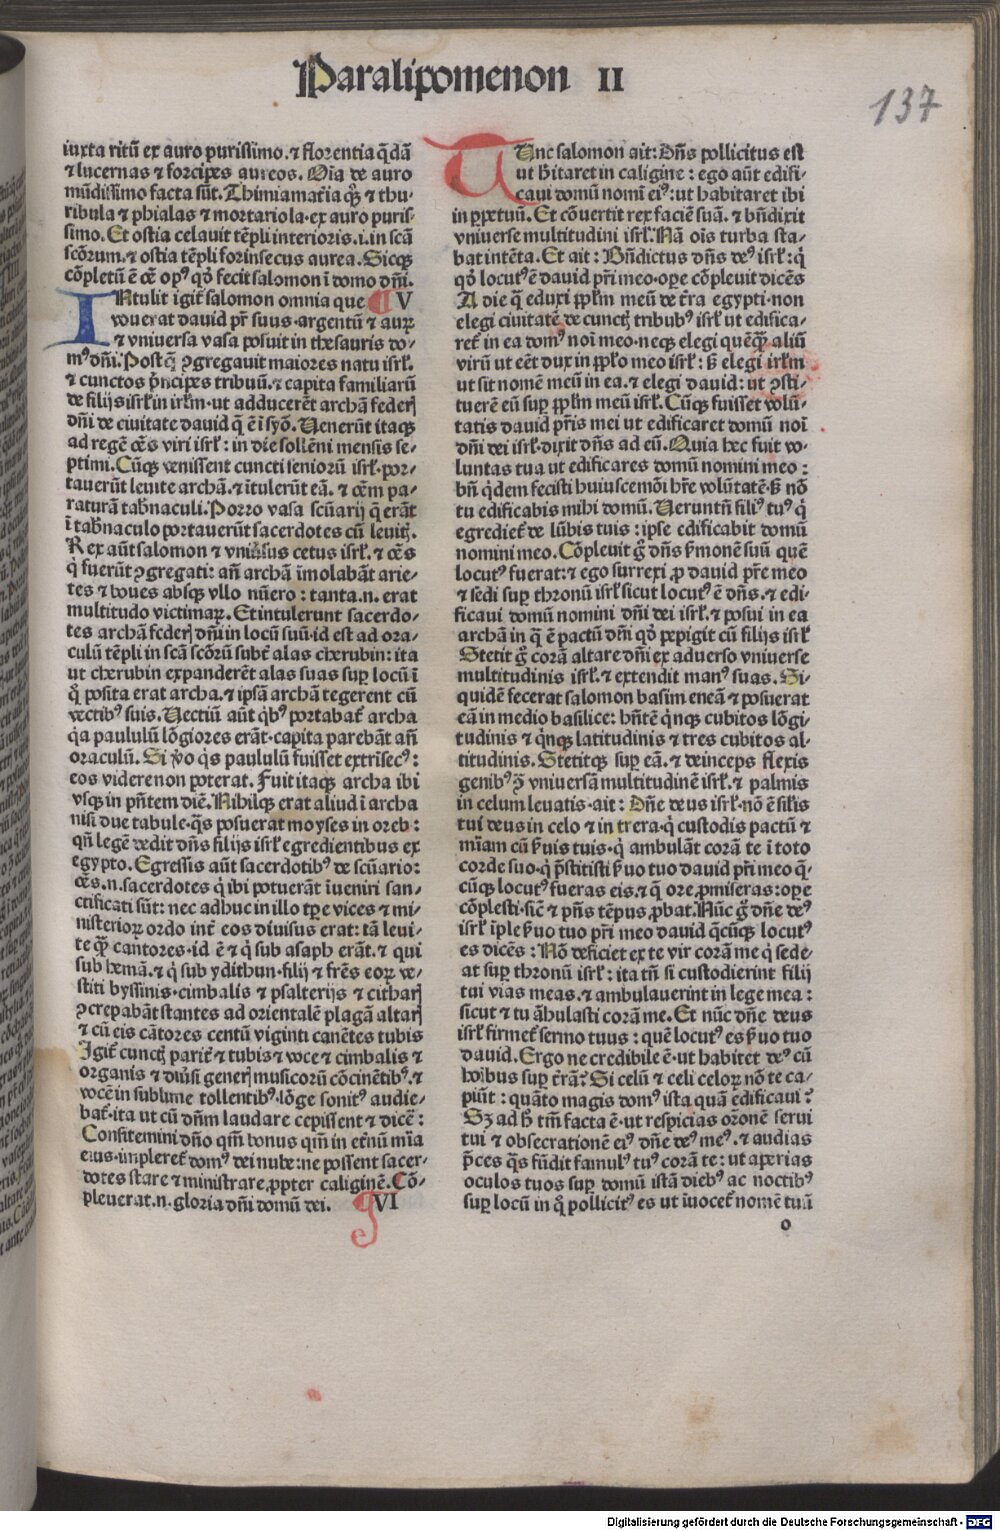 Paralipomenon II
137
iuxta ritū ex auro purissimo. ⁊ florentia q̄dā
⁊ lucernas ⁊ forcipes aureos. Oīa de auro
mūdissimo facta sūt. Thimiamat̄ia qꝫ ⁊ thu-
ribula ⁊ phialas ⁊ mortariola·ex auro puris-
simo. Et ostia celauit tēpli interioris .i. in scā
scōrum. ⁊ ostia tēpli forinsecus aurea. Sicqꝫ
cōpletū ē oē opꝰ qd̄ fecit salomon ī domo dn̄i.
INtulit igit̄ salomon omnia que V
vouerat dauid pr̄ suus·argentū ⁊ auꝝ
⁊ vniuersa vasa posuit in thesauris do-
mꝰ dn̄i. Postq̄ ꝯgregauit maiores natu isrl̄.
⁊ cunctos pn̄cipes tribuū. ⁊ capita familiarū
de filijs isrl̄ in irl̄m·ut adducerēt archā federꝭ
dn̄i de ciuitate dauid q̄ ē ī syō. Uenerūt itaqꝫ
ad regē oēs viri isrl̄: in die sollēni mensis se-
ptimi. Cūqꝫ venissent cuncti seniorū isrl̄·por-
tauerūt leuite archā. ⁊ ītulerūt eā. ⁊ oēm pa-
raturā tabn̄aculi. Porro vasa scūarij q̄ erāt
ī tabn̄aculo portauerūt sacerdotes cū leuitꝭ.
Rex aūt salomon ⁊ vniūsus cetus isrl̄. ⁊ oēs
q̄ fuerūt ꝯgregati: añ archā īmolabāt arie-
tes ⁊ boues absqꝫ vllo nūero: tanta.n. erat
multitudo victimaꝝ. Et intulerunt sacerdo-
tes archā federꝭ dn̄i in locū suū·id est ad ora-
culū tēpli in scā scōrū subt̄ alas cherubin: ita
ut cherubin expanderēt alas suas suꝑ locū ī
q̄ posita erat archa. ⁊ ipsā archā tegerent cū
vectibꝰ suis. Uectiū aūt qꝰbꝰ portabat̄ archa
q̄a paululū lōgiores erāt·capita parebāt añ
oraculū. Si v̄o q̄s paululū fuisset extrīsecꝰ:
eos videre non poterat. Fuit itaqꝫ archa ibi
vsqꝫ in pn̄tem diē. Nihilqꝫ erat aliud ī archa
nisi due tabule·q̄s posuerat moyses in oreb:
qn̄ legē dedit dn̄s filijs isrl̄ egredientibus ex
egypto. Egressis aūt sacerdotibꝰ de scūario:
oēs.n. sacerdotes q̄ ibi potuerāt īueniri san-
ctificati sūt: nec adhuc in illo tꝑe vices ⁊ mi-
nisterioꝝ ordo int̄ eos diuisus erat: tā leui-
te qꝫ cantores·id ē ⁊ q̄ sub asaph erāt. ⁊ qui
sub hemā. ⁊ q̄ sub ydithun·filij ⁊ fr̄es eoꝝ ve-
stiti byssinis·cimbalis ⁊ psalterijs ⁊ citharꝭ
ꝯcrepabāt stantes ad orientalē plagā altarꝭ
⁊ cū eis cātores centū viginti canētes tubis
Igit̄ cunctꝭ parit̄ ⁊ tubis ⁊ voce ⁊ cimbalis ⁊
organis ⁊ diūsi generꝭ musicorū cōcinētibꝰ. ⁊
vocē in sublime tollentibꝰ·lōge sonitꝰ audie-
bat̄·ita ut cū dn̄m laudare cepissent ⁊ dicē:
Confitemini dn̄o qm̄ bonus qm̄ in et̄nū mīa
eius·impleret̄ domꝰ dei nube: ne possent sacer-
dotes stare ⁊ ministrare·ꝓpter caliginē. Cō-
pleuerat.n. gloria dn̄i domū dei. VI
TUnc salomon ait: Dn̄s pollicitus est
ut h̄itaret in caligine: ego aūt edifi-
caui domū nomī eiꝰ: ut habitaret ibi
in ꝑpetuū. Et cōuertit rex faciē suā. ⁊ bn̄dixit
vniuerse multitudini isrl̄. Nā oīs turba sta-
bat intēta. Et ait: Bn̄dictus dn̄s deꝰ isrl̄: q̄
qd̄ locutꝰ ē dauid pr̄i meo·ope cōpleuit dicēs
A die q̄ eduxi ppl̄m meū de t̄ra egypti·non
elegi ciuitatē de cunctꝭ tribubꝰ isrl̄ ut edifica-
ret̄ in ea domꝰ noī meo·neqꝫ elegi quēqꝫ aliū
virū ut eēt dux in pplo meo isrl̄: s̄ elegi irl̄m
ut sit nomē meū in ea. ⁊ elegi dauid: ut ꝯsti-
tuerē eū suꝑ ppl̄m meū isrl̄. Cūqꝫ fuisset volū-
tatis dauid pr̄is mei ut edificaret domū noī
dn̄i dei isrl̄·dixit dn̄s ad eū. Quia hec fuit vo-
luntas tua ut edificares domū nomini meo:
bn̄ qd̄em fecisti huiuscemōi hr̄e volūtatē·s̄ nō
tu edificabis mihi domū. Ueruntn̄ filiꝰ tuꝰ q̄
egrediet̄ de lūbis tuis: ipse edificabit domū
nomini meo. Cōpleuit g̊ dn̄s s̄monē suū quē
locutꝰ fuerat: ⁊ ego surrexi ꝓ dauid pr̄e meo
⁊ sedi suꝑ thronū isrl̄ sicut locutꝰ ē dn̄s. ⁊ edi-
ficaui domū nomini dn̄i dei isrl̄. ⁊ posui in ea
archā in q̄ ē pactū dn̄i qd̄ pepigit cū filijs isrl̄
Stetit g̊ corā altare dn̄i ex aduerso vniuerse
multitudinis isrl̄. ⁊ extendit manꝰ suas. Si-
quidē fecerat salomon basim eneā ⁊ posuerat
eā in medio basilice: hn̄tē qn̄qꝫ cubitos lōgi-
tudinis ⁊ qn̄qꝫ latitudinis ⁊ tres cubitos al-
titudinis. Stetitqꝫ suꝑ eā. ⁊ deinceps flexis
genibꝰ ꝯ̄ vniuersā multitudinē isrl̄. ⁊ palmis
in celum leuatis·ait: Dn̄e deus isrl̄·nō ē sil̄is
tui deus in celo ⁊ in trera·q̄ custodis pactū ⁊
mīam cū s̄uis tuis·q̄ ambulāt corā te ī toto
corde suo·q̄ p̄stitisti s̄uo tuo dauid pr̄i meo q̄-
cūqꝫ locutꝰ fueras eis. ⁊ q̄ ore ꝓmiseras: ope
cōplesti·sic̄ ⁊ pn̄s tēpus ꝓbat. Nūc g̊ dn̄e deꝰ
isrl̄ īple s̄uo tuo pr̄i meo dauid q̄cūqꝫ locutꝰ
es dicēs: Nō deficiet ex te vir corā me q̄ sede-
at suꝑ thronū isrl̄: ita tn̄ si custodierint filij
tui vias meas. ⁊ ambulauerint in lege mea:
sicut ⁊ tu āhulasti corā me. Et nūc dn̄e deus
isrl̄ firmet̄ sermo tuus: quē locutꝰ es s̄uo tuo
dauid. Ergo ne credibile ē·ut habitet deꝰ cū
hoībus suꝑ t̄rā? Si celū ⁊ celi celoꝝ nō te ca-
piūt: quāto magis domꝰ ista quā edificaui?
Sꝫ ad h̄ tm̄ facta ē·ut respicias orōnē serui
tui ⁊ obsecrationē eiꝰ dn̄e deꝰ meꝰ. ⁊ audias
p̄ces q̄s fūdit famulꝰ tuꝰ corā te: ut aperias
oculos tuos suꝑ domū istā diebꝰ ac noctibꝰ
suꝑ locū in q̄ pollicitꝰ es ut īuocet̄ nomē tuū
o
Digitalisierung gefördert durch die Deutsche Forschungsgemeinschaft - DFG